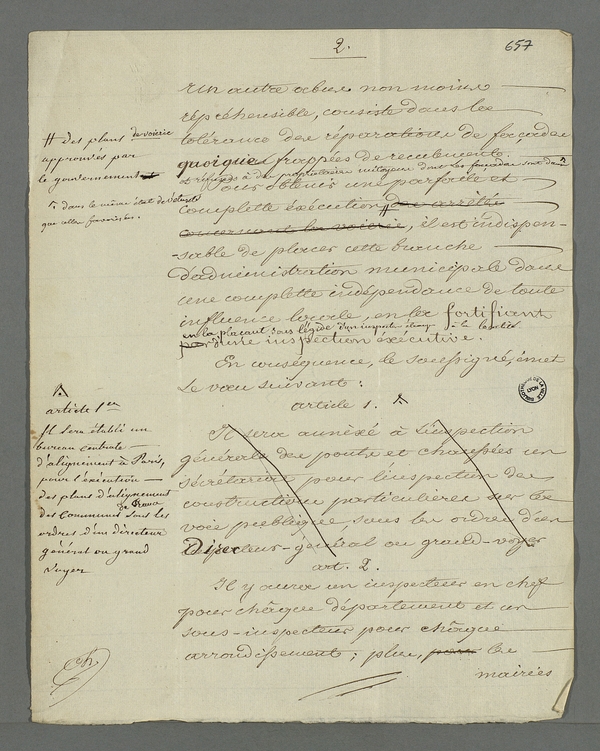 2.
657
Un autre abus non moins
répréhensible, consiste dans les
tolérance des réparations de façades
quoique frappées de reculement
et refusées à des propriétaires mitoyens dont les façades sont dans
Pour obtenir une parfaite et
complette éxécution # des arrêtés
concernant la voierie, il est indispen-
sable de placer cette branche
d'administration municipale dans
une complette indépendance de toute
influence locale, en les fortifiant
en la plaçant sous l'égide d'un
par d'une inspection éxécutive.
En conséquence, le soussigné, émet
le vœu suivant :
article 1.
Il sera annéxé à l'inspection
générale des ponts et chaussées un
secrétariat pour l'inspection des
constructions particulières sur les
voies publiques, sous les ordres d'un
Directeur-général ou grand-voyer
art. 2.
Il y aura un inspecteur en chef
pour châque département et un
sous-inspecteur pour châque
arrondissement ; plus, pour les
mairées
# des plans de voierie
approuvés par
le gouvernement
dans le même état de vétusté
que celles favorisées.
article 1er
Il sera établi un
bureau central
d'alignement à Paris,
pour l'éxécution
des plans d'alignement
des Communes de France sous les
ordres d'un directeur
général ou grand
Voyer
BIBLIOTHEQUE DE LA VILLE
LYON